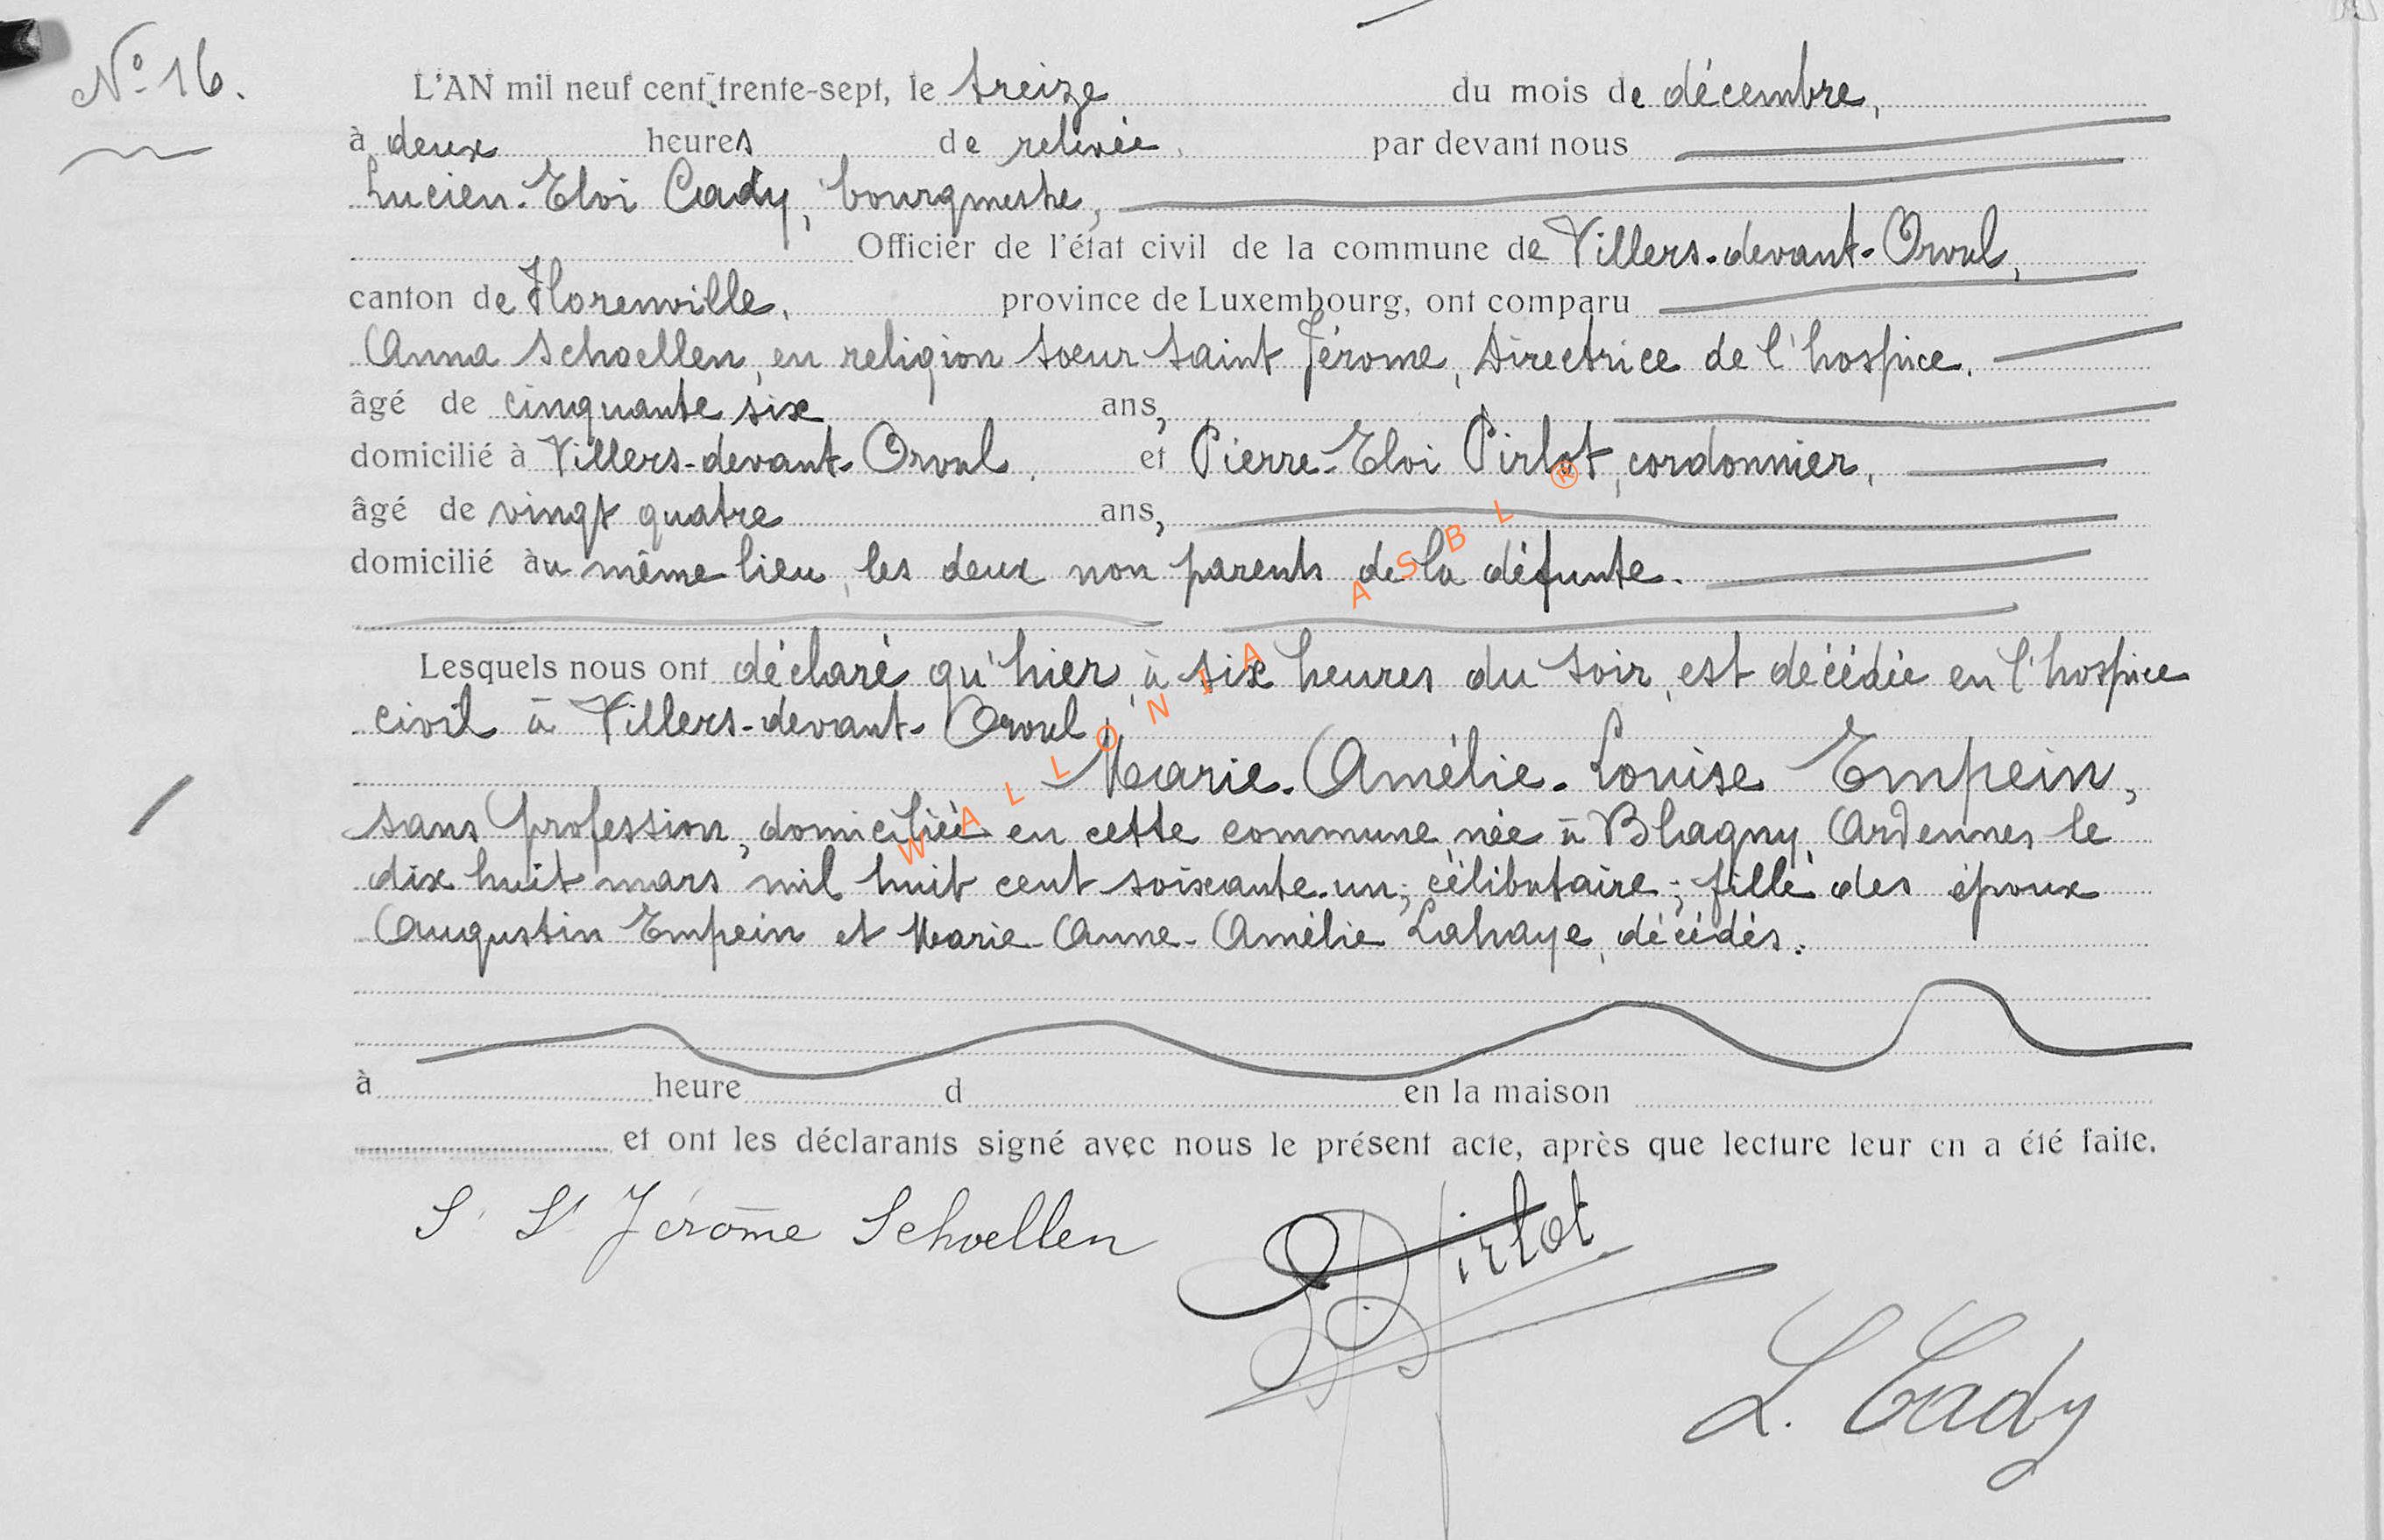 N° 16.
L'AN mil neuf cent trente-sept, le treize du mois de décembre,
à deux heures de relevée par devant nous
Lucien-Eloi Cady, bourgmestre,
Officier de l'état civil de la commune de Villers-devant-Orval,
canton de Florenville, province de Luxembourg, ont comparu
Anna Schoellen, en religion soeur saint Jérome, Directrice de l'hospice.
âgé de cinquante six ans,
domicilié à Villers-devant-Orval, et Pierre-Eloi Pirlot, cordonnier,
âgé de vingt quatre ans,
domicilié au même lieu, les deux non parents de la défunte.
Lesquels nous ont déclaré qu'hier, à six heures du soir, est décédée en l'hospice
civil à Villers-devant-Orval,
Marie-Amélie-Louise Empein,
sans profession, domiciliée en cette commune, née à Blagny, Ardennes le
dix huit mars mil huit cent soixante-un; célibataire; fille des époux
Augustin Empein et Marie-Anne-Amélie Lahaye, décédés.
à heure d en la maison
et ont les déclarants signé avec nous le présent acte, après que lecture leur en a été faite.
S. St Jérôme Schoellen
Pirlot
L. Cady
WALLONIA ASBL ®